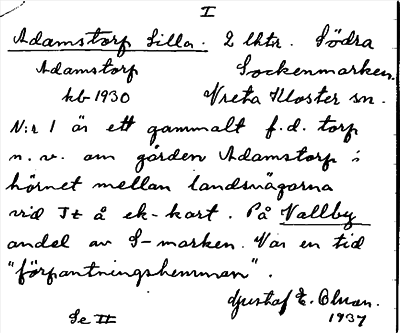 I
Adamstorp Lilla. 2 lhtr. Södra
Adamstorp Sockenmarken.
kb 1930 Vreta Kloster sn.
N:r 1 är ett gammalt f.d. torp
n.v. om gården Adamstorp i
hörnet mellan landsvägarna
vid It å ek-kart. På Vallby
andel av S-marken. Var en tid
"förpantningshemman".
Gustaf E. Olsson.
Se II 1937